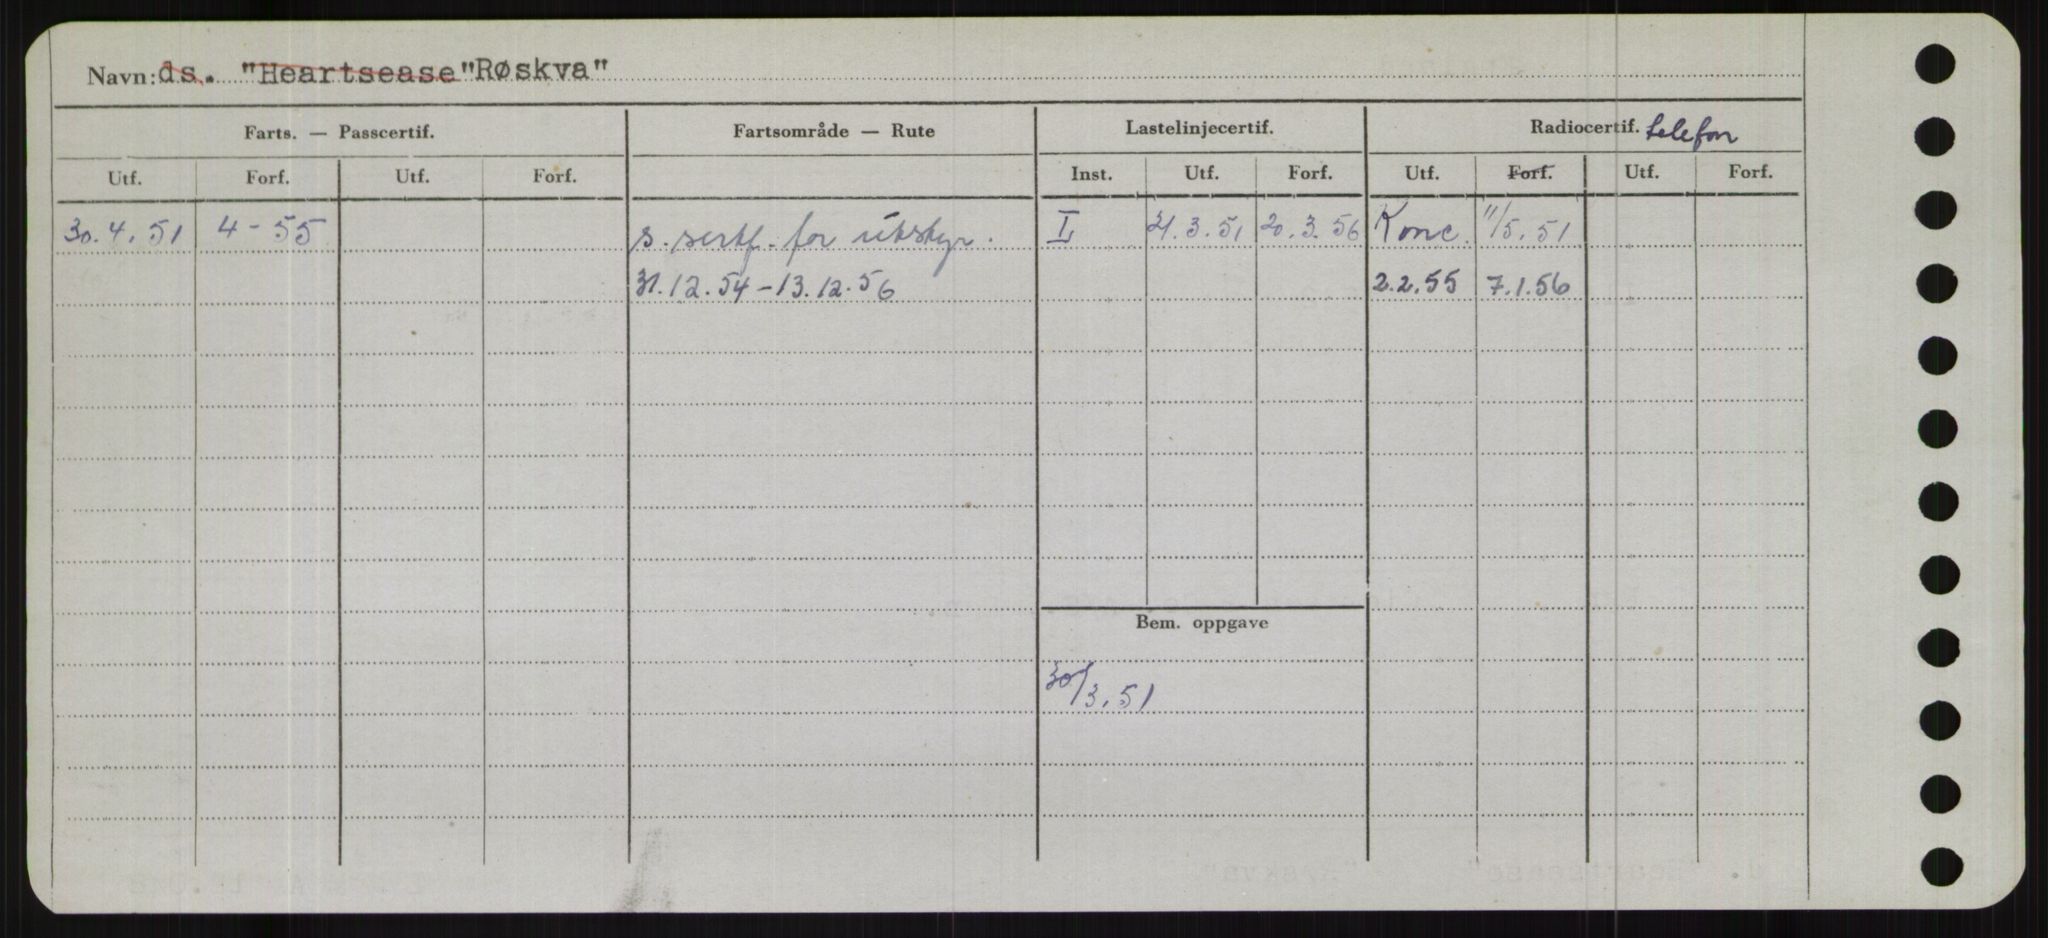 Navn: ds. "Heartsease" "Røskva"
Farts. — Passcertif. Fartsområde — Rute Lastelinjecertif. Radiocertif. telefon
Utf. Forf. Utf. Forf. Inst. Utf. Forf. Utf. Forf. Utf. Forf.
30.4.51 4-55 s. sertf. for utstyr. I 21.3.51 20.3.56 Konc. 11/5.51
31.12.54-13.12.56 2.2.55 7.1.56
Bem. oppgave
30/3.51